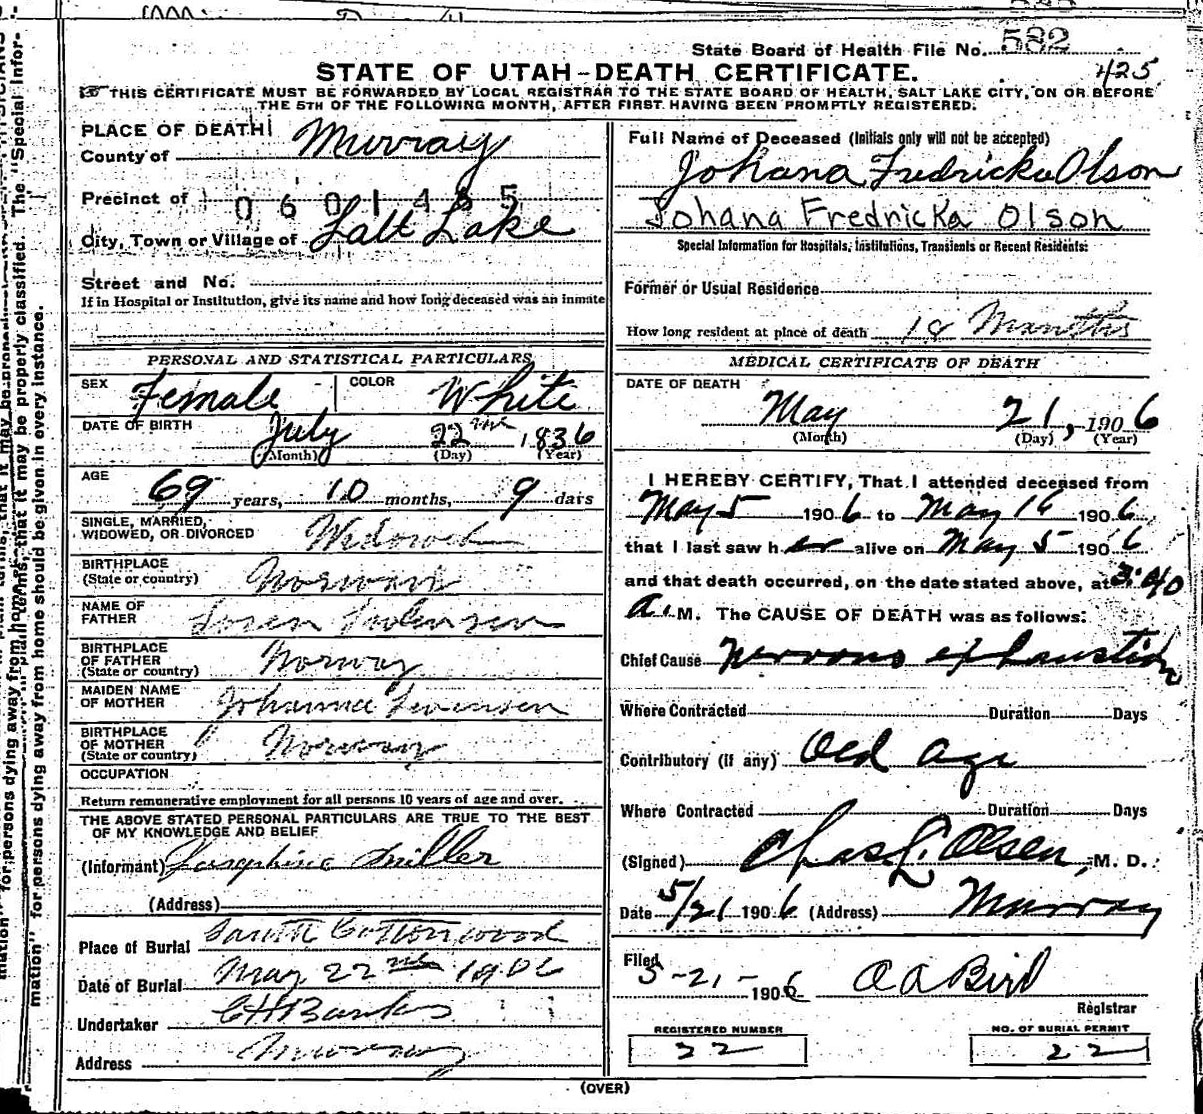 State Board of Health File No. 582
STATE OF UTAH-DEATH CERTIFICATE. 425
THIS CERTIFICATE MUST BE FORWARDED BY LOCAL REGISTRAR TO THE STATE BOARD OF HEALTH, SALT LAKE CITY, ON OR BEFORE
THE 5TH OF THE FOLLOWING MONTH, AFTER FIRST HAVING BEEN PROMPTLY REGISTERED.
PLACE OF DEATH
County of Murray
Precinct of 0601485
City, Town or Village of Salt Lake
Street and No.
If in Hospital or Institution, give its name and how long deceased was an inmate
PERSONAL AND STATISTICAL PARTICULARS
SEX Female COLOR White
DATE OF BIRTH July 22 1836
(Month) (Day) (Year)
AGE
69 years, 10 months, 9 days
SINGLE, MARRIED,
WIDOWED, OR DIVORCED Widowed
BIRTHPLACE
(State or country) Norway
NAME OF
FATHER Soren
BIRTHPLACE
OF FATHER
(State or country) Norway
MAIDEN NAME
OF MOTHER Johanna
BIRTHPLACE
OF MOTHER
(State or country) Norway
OCCUPATION
Return remunerative employment for all persons 10 years of age and over.
THE ABOVE STATED PERSONAL PARTICULARS ARE TRUE TO THE BEST
OF MY KNOWLEDGE AND BELIEF
(Informant) Josephine Miller
(Address)
Place of Burial South Cottonwood
Date of Burial May 22nd 1906
Undertaker
Address Murray
Full Name of Deceased (Initials only will not be accepted)
Johana Fredricka Olson
Johana Fredricka Olson
Special Information for Hospitals, Institutions, Transients or Recent Residents:
Former or Usual Residence
How long resident at place of death 18 Months
MEDICAL CERTIFICATE OF DEATH
DATE OF DEATH
May 21, 1906
(Month) (Day) (Year)
I HEREBY CERTIFY, That I attended deceased from
May 5 1906 to May 16 1906
that I last saw her alive on May 5 1906
and that death occurred, on the date stated above, at 3:40
A. M. The CAUSE OF DEATH was as follows:
Chief Cause nervous exhaustion
Where Contracted Duration Days
Contributory (if any) Old Age
Where Contracted Duration Days
(Signed) Chas L. Olsen, M. D.
Date 5/21 1906 (Address) Murray
Filed
5-21-1906 Bird
Registrar
REGISTERED NUMBER NO. OF BURIAL PERMIT
22 22
(OVER)